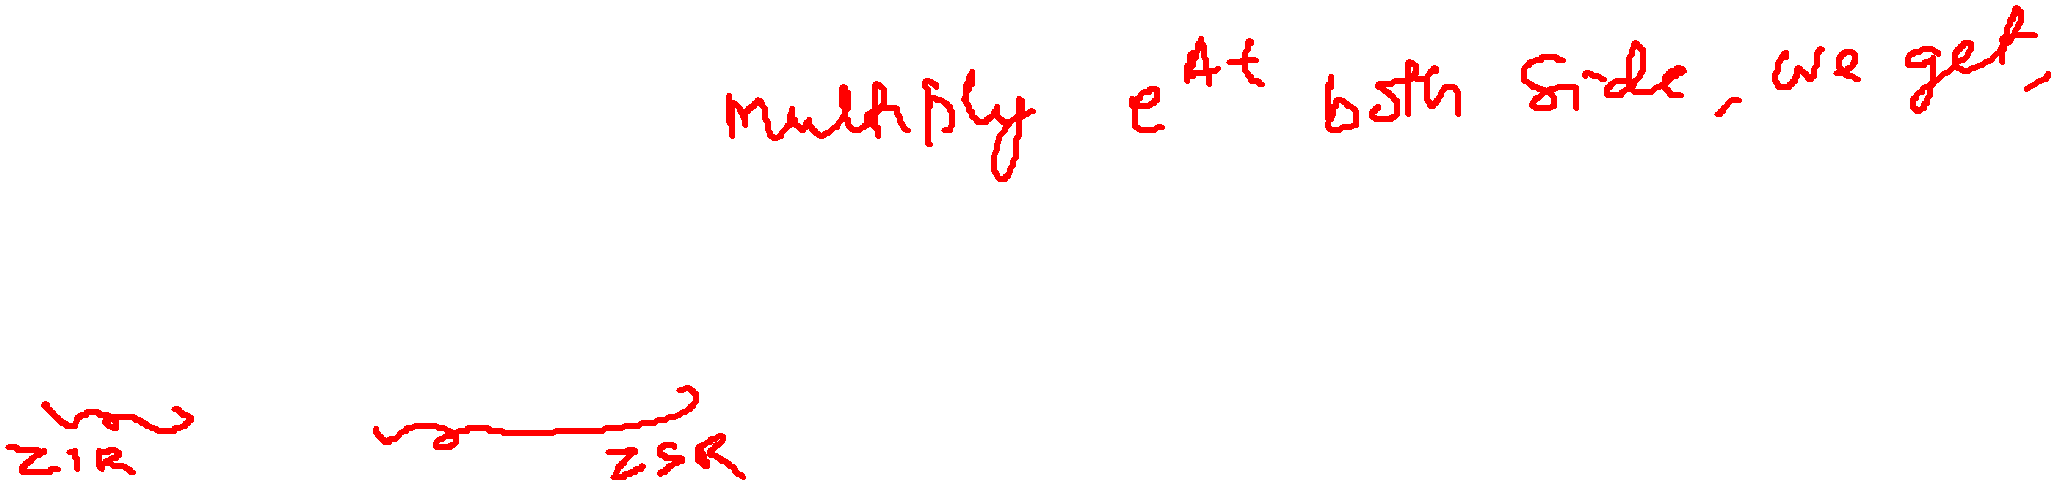 Multiply e^At both side, we get,
ZIR ZSR